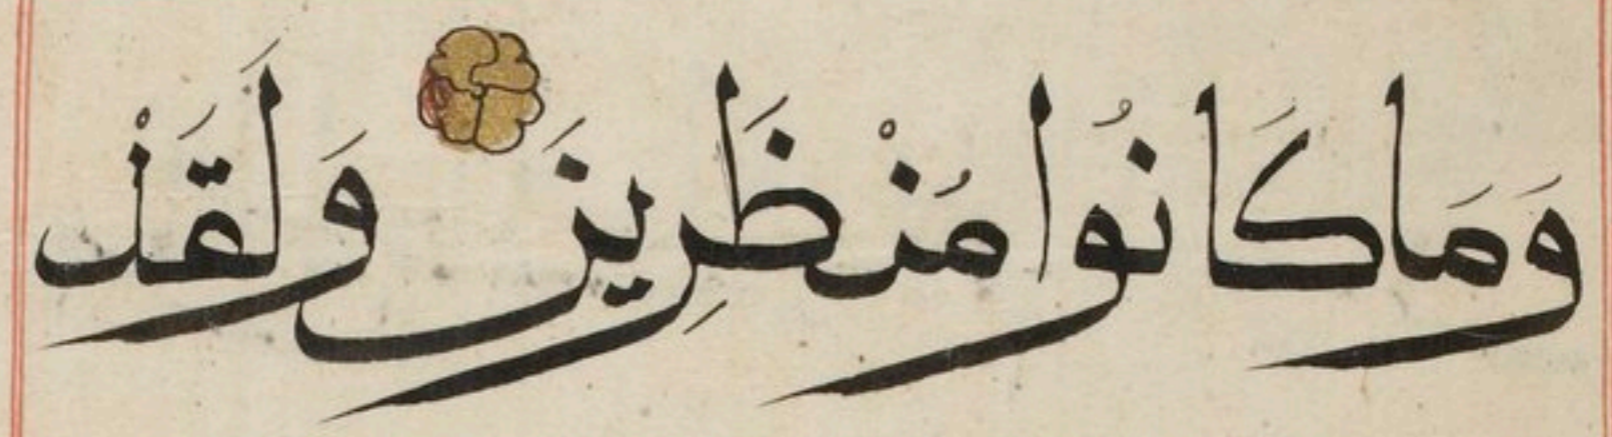 وَمَا كَانُوا مُنْظَرِينَ وَلَقَدْ